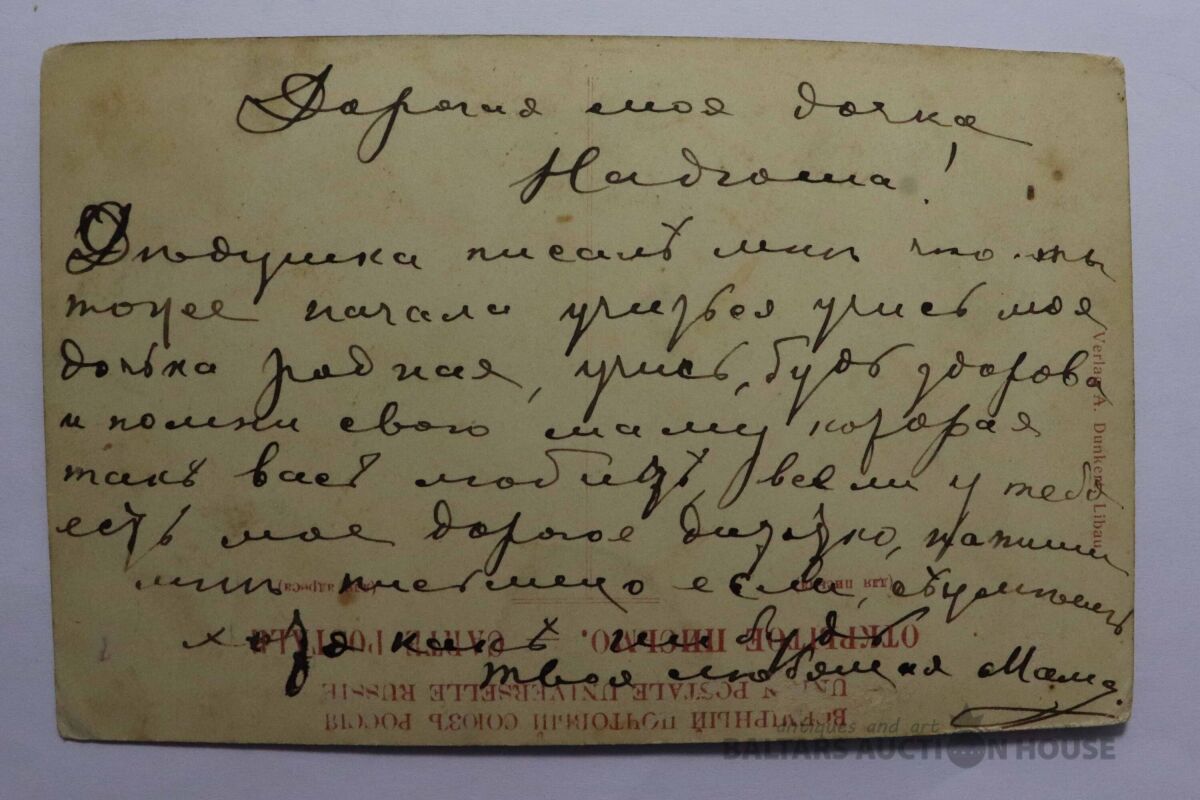 Дорогая моя дочка
Надюша!
Дѣдушка писалъ мнѣ что ты
тоже начала учиться учись моя
дочька родная, учись, будь здорова
и помни свою маму которая
такъ васъ любитъ, все ли у тебя
есть мое дорогое дитятко, напиши
мнѣ письмецо если съумѣешь
хотя какъ нибудь
твоя любящая Мама
Verlag A. Dunkert, Libau
(для письма)
(для адреса)
ОТКРЫТОЕ ПИСЬМО. — CARTE POSTALE
UNION POSTALE UNIVERSELLE RUSSIE
ВСЕМІРНЫЙ ПОЧТОВЫЙ СОЮЗЪ РОССІЯ
antiques and art
BALTARS AUCTION HOUSE